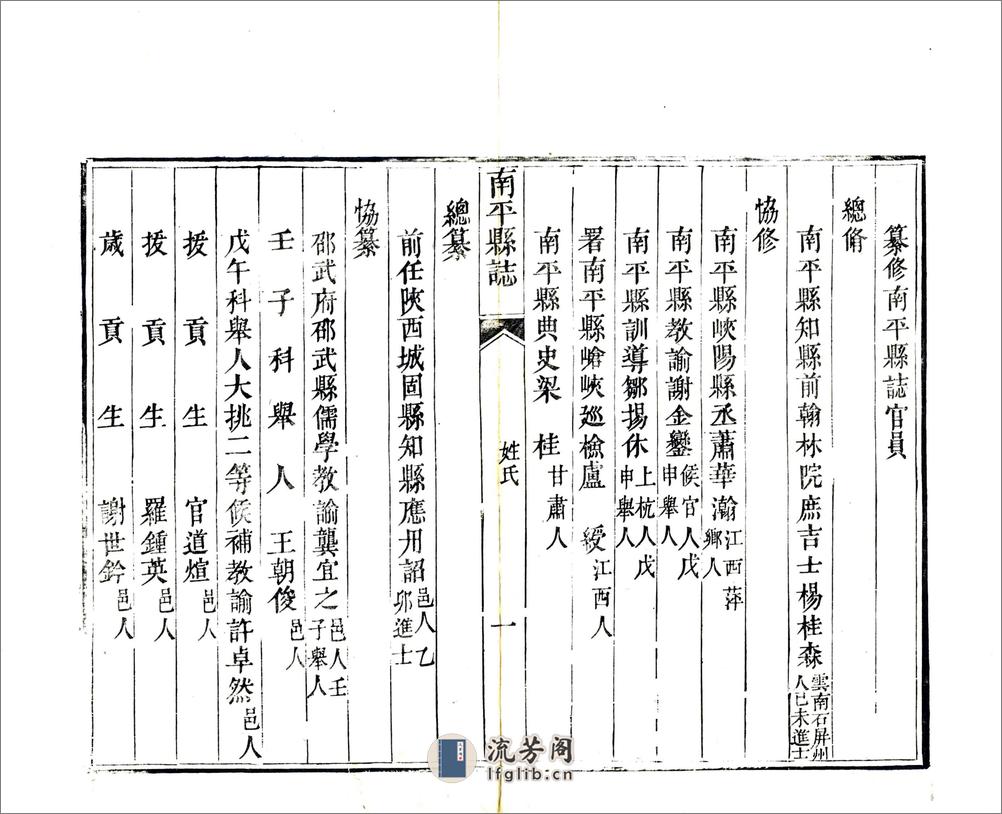 纂修南平縣誌官員
總脩
南平縣知縣前翰林院庶吉士楊桂森雲南石屏州人己未進士
協修
南平縣峽陽縣丞蕭華瀚江西萍鄉人
南平縣教諭謝金鑾侯官人戊申舉人
南平縣訓導鄒揚休上杭人戊申舉人
署南平縣嵢峽巡檢盧綬江西人
南平縣典史梁桂甘肅人
南平縣誌
姓氏
一
總纂
前任陝西城固縣知縣應丹詔邑人乙卯進士
協纂
邵武府邵武縣儒學教諭龔宜之邑人壬子舉人
壬子科舉人王朝俊邑人
戊午科舉人大挑二等候補教諭許卓然邑人
拔貢生官道煊邑人
拔貢生羅鍾英邑人
歲貢生謝世鈐邑人
流芳阁
lfglib.cn